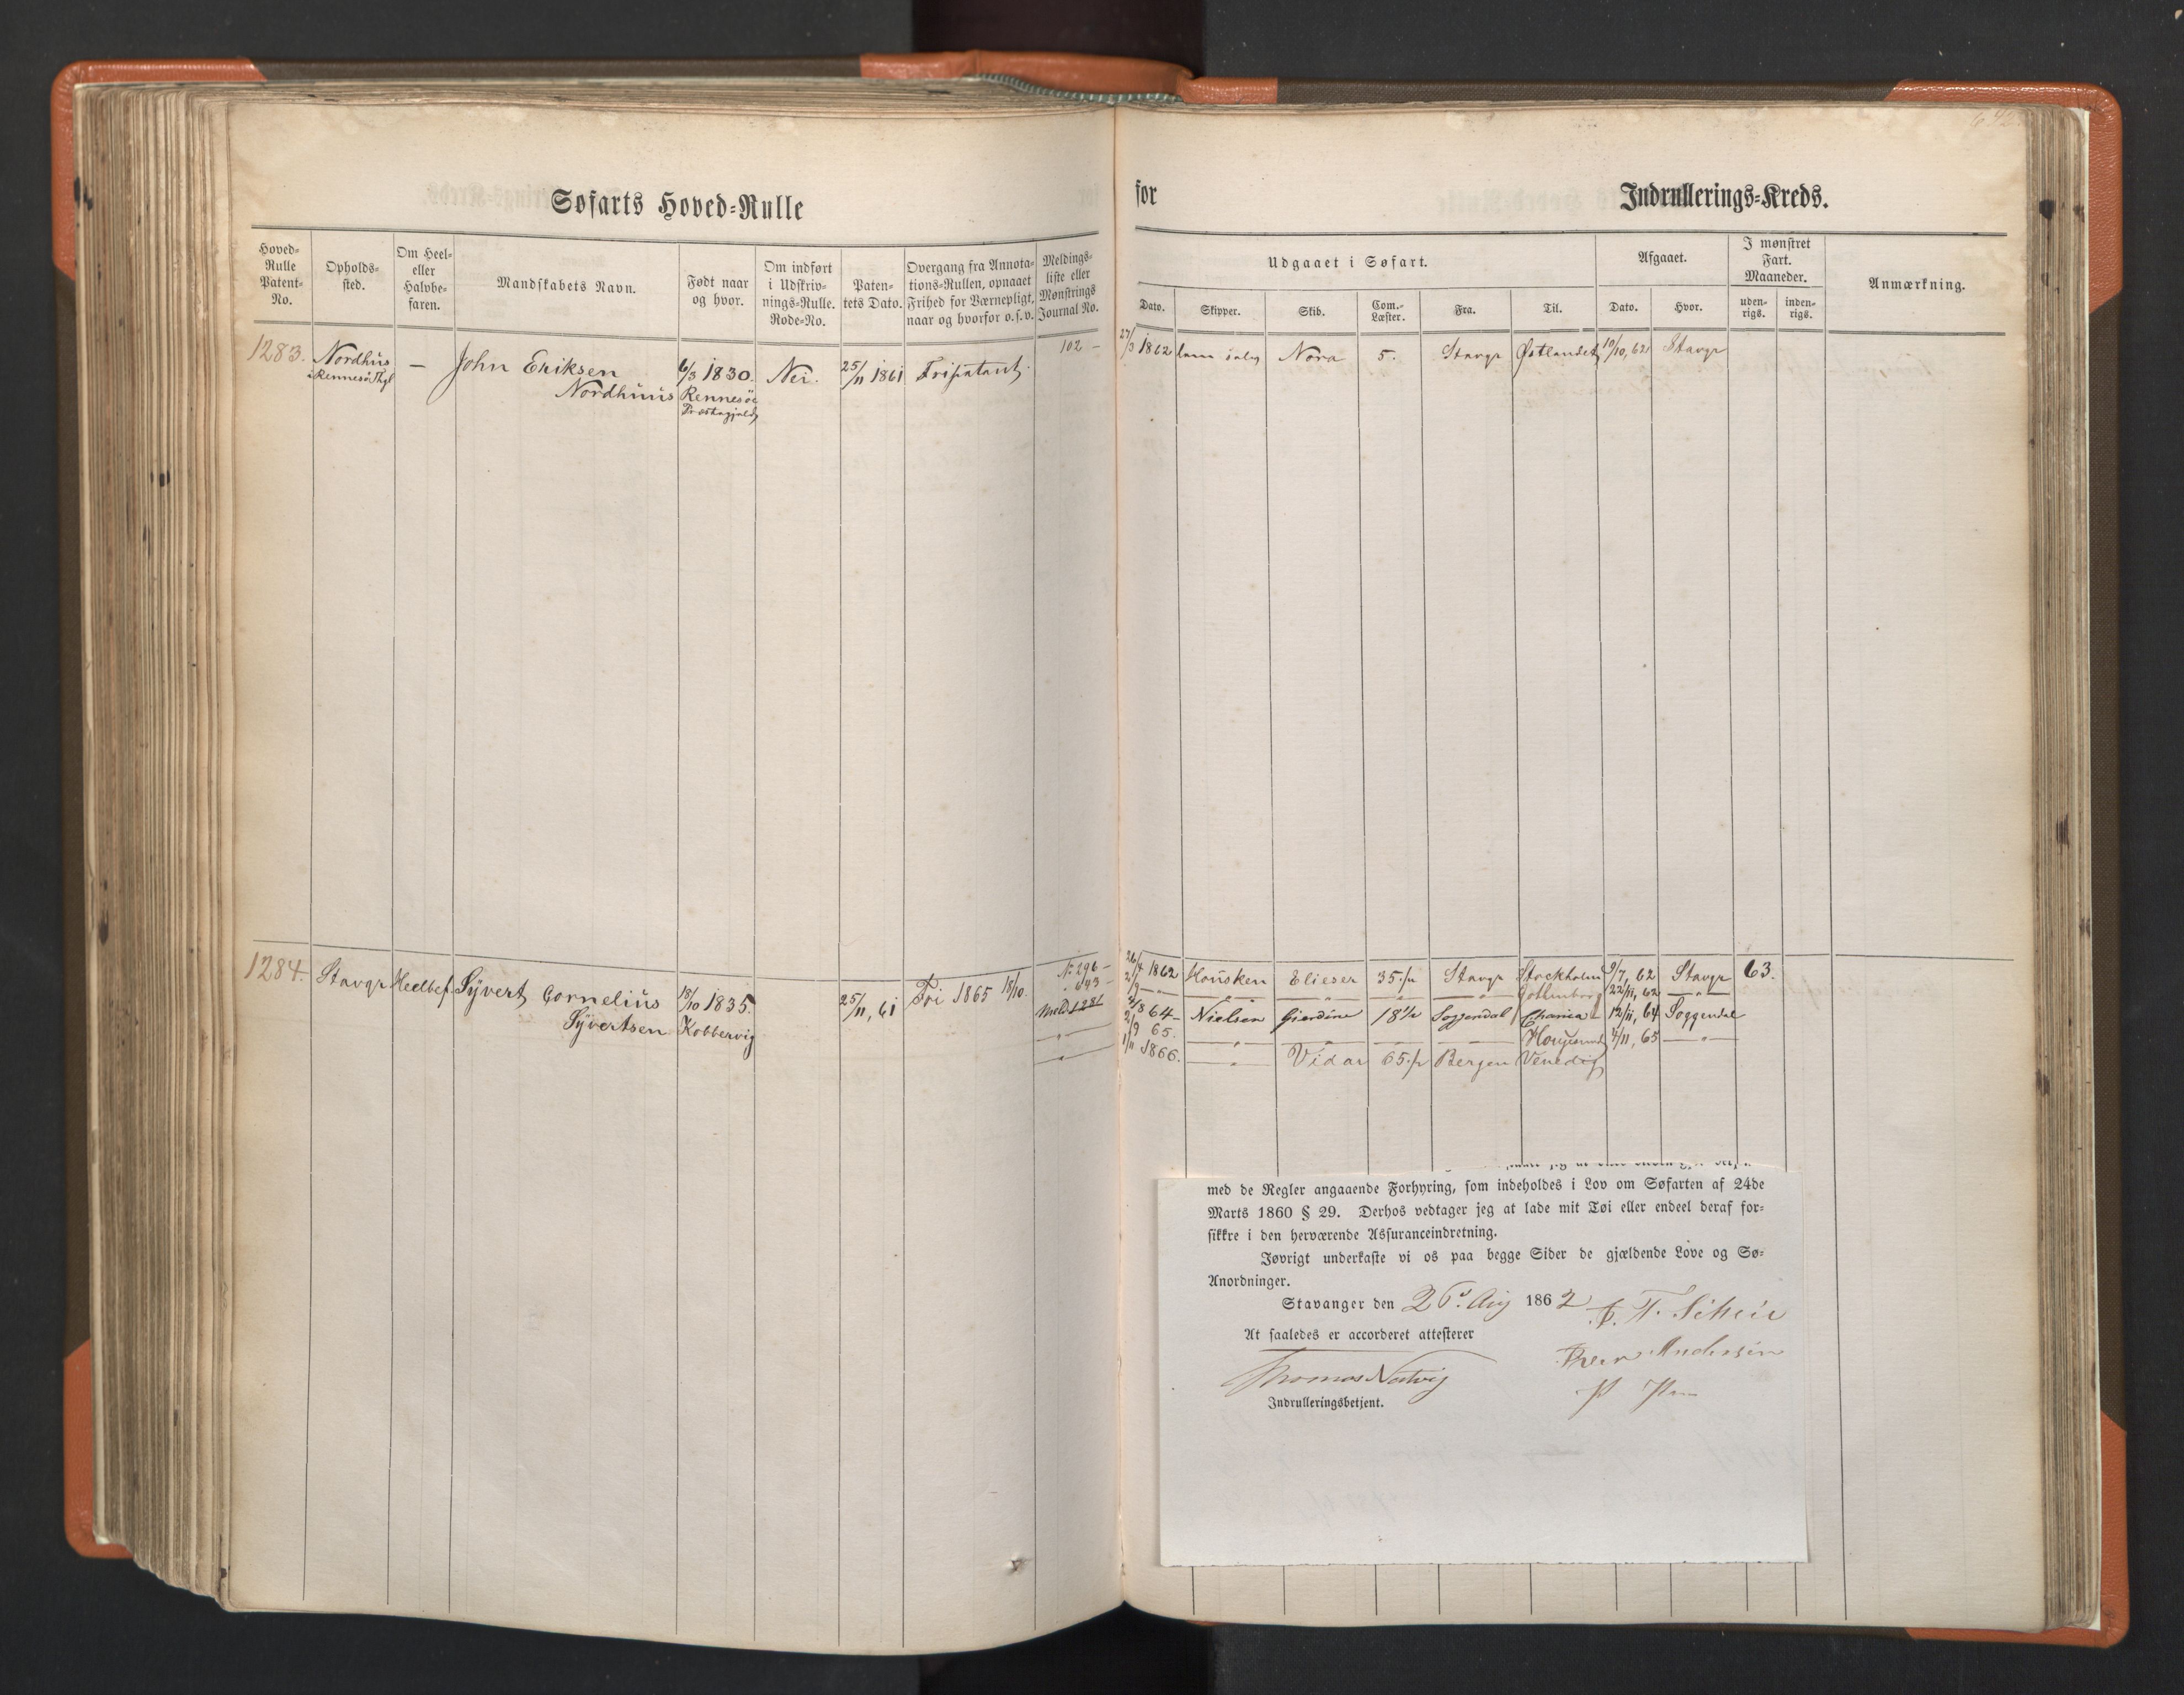 Søfarts Hoved=Rulle
Hoved=
Rulle
Patent=
No.
Opholds=
sted.
Om Heel=
eller
Halvbe=
faren.
Mandskabets Navn.
Født naar
og hvor.
Om indført
i Udskriv=
nings=Rulle.
Rode=No.
Paten=
tets Dato.
Overgang fra Annota=
tions=Rullen, opnaaet
Frihed for Værnepligt,
naar og hvorfor o.s.v.
Meldings=
liste eller
Mønstrings
Journal No.
1283. Nordhus — John Eriksen 6/3 1830. Nei. 25/11 1861 Fripatent. 102 —
Nordhuus Rennesöe
Præstegjeld
1284. Stavgr Heelbef. Syvert Cornelius 18/10 1835. 25/11, 61 Fri 1865 18/10. No 296 —
Syvertsen Kobbervig
" 643 —
Meld 1281
— " —
— " —
for Indrullerings=Kreds.
Udgaaet i Søfart.
Afgaaet.
I mønstret
Fart.
Maaneder.
Anmærkning.
Dato.
Skipper.
Skib.
Com.=
Læster.
Fra.
Til.
Dato.
Hvor.
uden=
rigs.
inden=
rigs.
27/3 1862 Nora 5. Stavgr Østlandet 10/10, 62 Stavgr
26/4 1862 Housken Elieser 35 Stavgr Stockholm 9/7, 62 Stavgr 63.
2/9 — " — — " — — " — — — " — Gothenborg 22/11, 62 — " —
64 — Nielsen Gierdine 18 1/2 Soggendal Chania 12/11, 64 Soggendal
2/9 65. — " — — " — — — Hougesund 4/11, 65 — " —
1/11 1866. — " — Vidar 65 Bergen Venedig
med de Regler angaaende Forhyring, som indeholdes i Lov om Søfarten af 24de
Marts 1860 § 29. Derhos vedtager jeg at lade mit Tøi eller endeel deraf for=
sikkre i den herværende Assuranceindretning.
Iøvrigt underkaste vi os paa begge Sider de gjældende Love og Sø=
Anordninger.
Stavanger den 26d Aug 1862
At saaledes er accorderet attesterer
Andersen
Thomas Natvig
Indrulleringsbetjent.